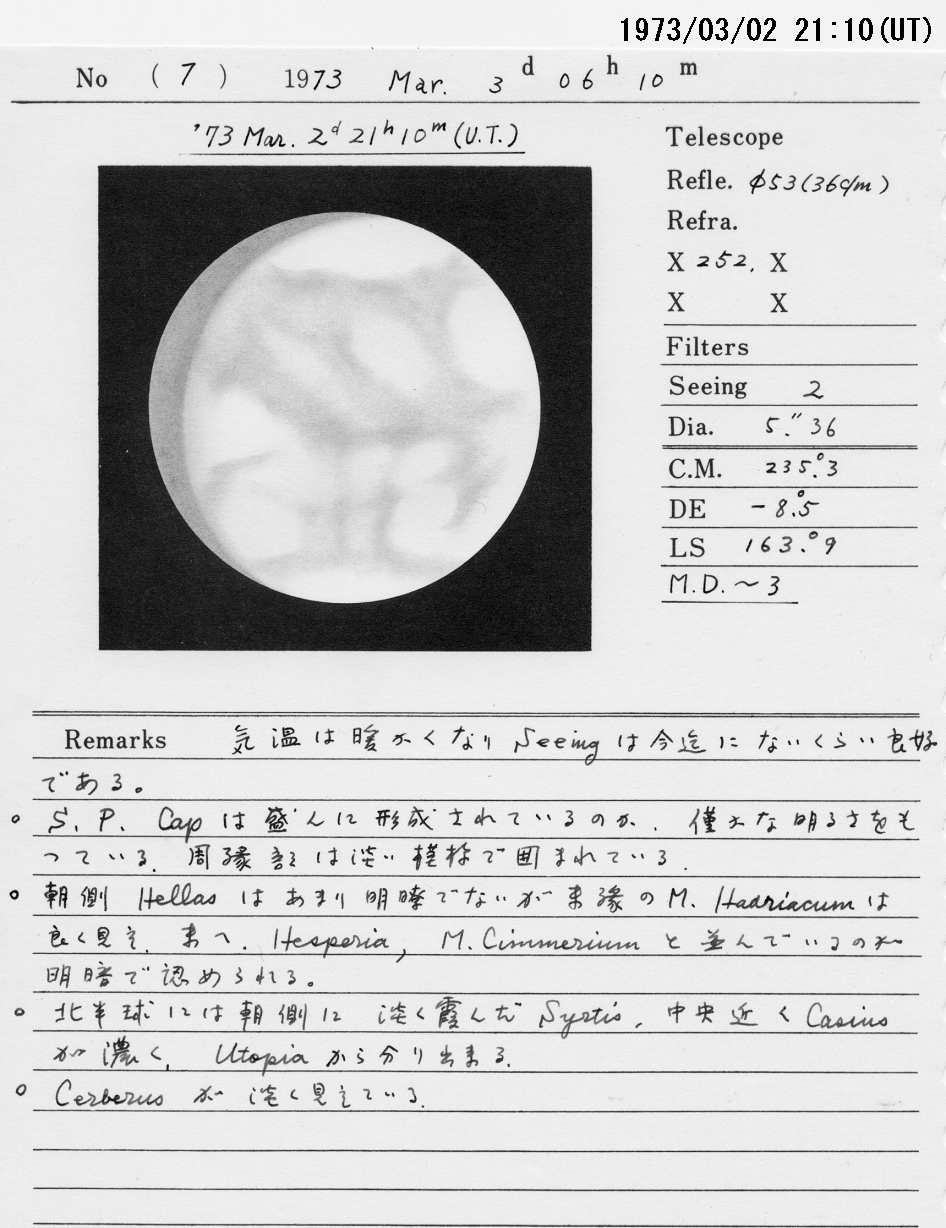 1973/03/02 21:10(UT)
No (7) 1973 Mar. 3 d 06 h 10 m
'73 Mar. 2d 21h 10m (U.T.)
Telescope
Refle. φ53(36c/m)
Refra.
X 252. X
X X
Filters
Seeing 2
Dia. 5."36
C.M. 235.°3
DE -8.°5
LS 163.°9
M.D. ~3
Remarks 気温は暖かくなり Seeingは今迄にないくらい良好
である。
○ S. P. Capは盛んに形成されているのか、僅かな明るさをも
っている。周縁部は淡い模様で囲まれている。
○ 朝側 Hellas はあまり明瞭でないが東縁の M. Hadriacum は
良く見え、東へ、Hesperia, M. Cimmerium と並んでいるのが
明暗で認められる。
○ 北半球には朝側に 淡く霞んだ Syrtis, 中央近く Casius
が濃く、Utopia から分り出来る。
○ Cerberus が淡く見えている。